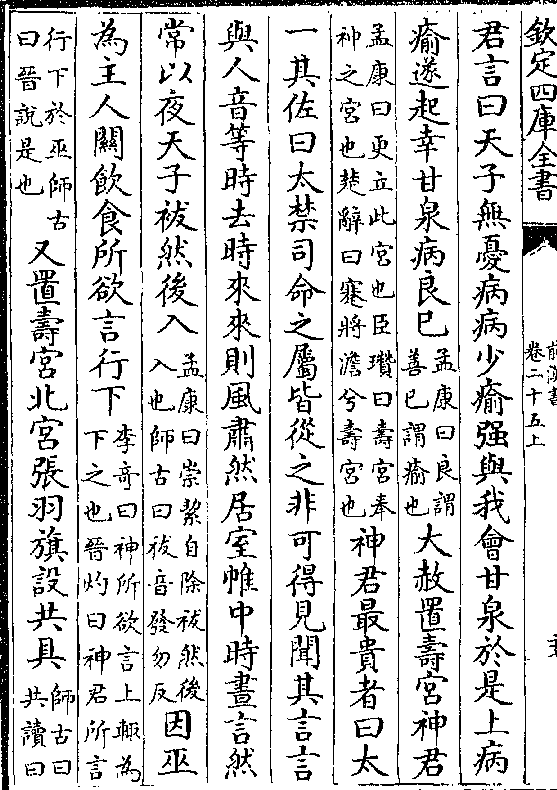 欽定四庫全書
前漢書
卷二十五上
君言曰天子無憂病病少瘉强與我會甘泉於是上病
瘉遂起幸甘泉病良已
孟康曰良謂
善已謂瘉也
大赦置壽宫神君
孟康曰更立此宫也臣瓉曰壽宫奉
神之宫也楚辭曰蹇將澹兮壽宫也
神君最貴者曰太
一其佐曰太禁司命之屬皆從之非可得見聞其言言
與人音等時去時來來則風肅然居室帷中時晝言然
常以夜天子祓然後入
孟康曰崇絜自除祓然後
入也師古曰祓音發勿反
因巫
為主人關飲食所欲言行下
李奇曰神所欲言上輙為
下之也晉灼曰神君所言
行下於巫師古
曰晉說是也
又置壽宫北宫張羽旗設共具
師古曰
共讀曰